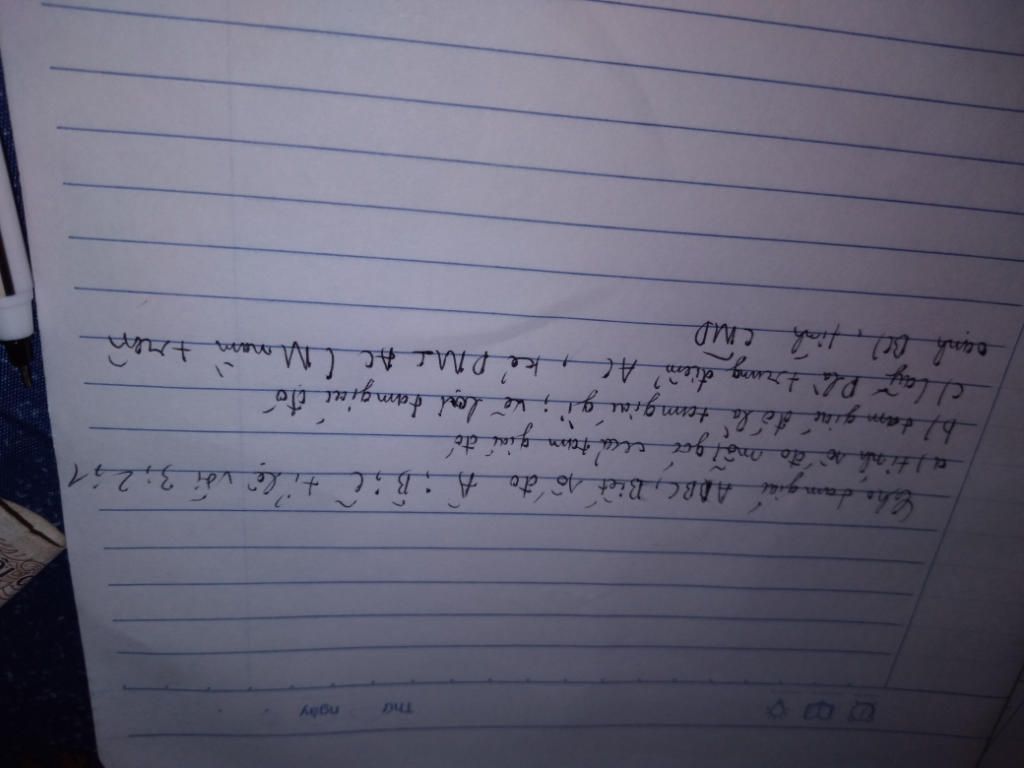 Thứ ngày
Cho tam giác ABC, Biết số đo Â; B̂; Ĉ tỉ lệ với 3; 2; 1
a) tính số đo mỗi góc của tam giác đó
b) tam giác đó là tam giác gì; vẽ lại tam giác đó
c) lấy D là trung điểm AC, kẻ DM ⊥ AC (M nằm trên
cạnh BC), tính CMD